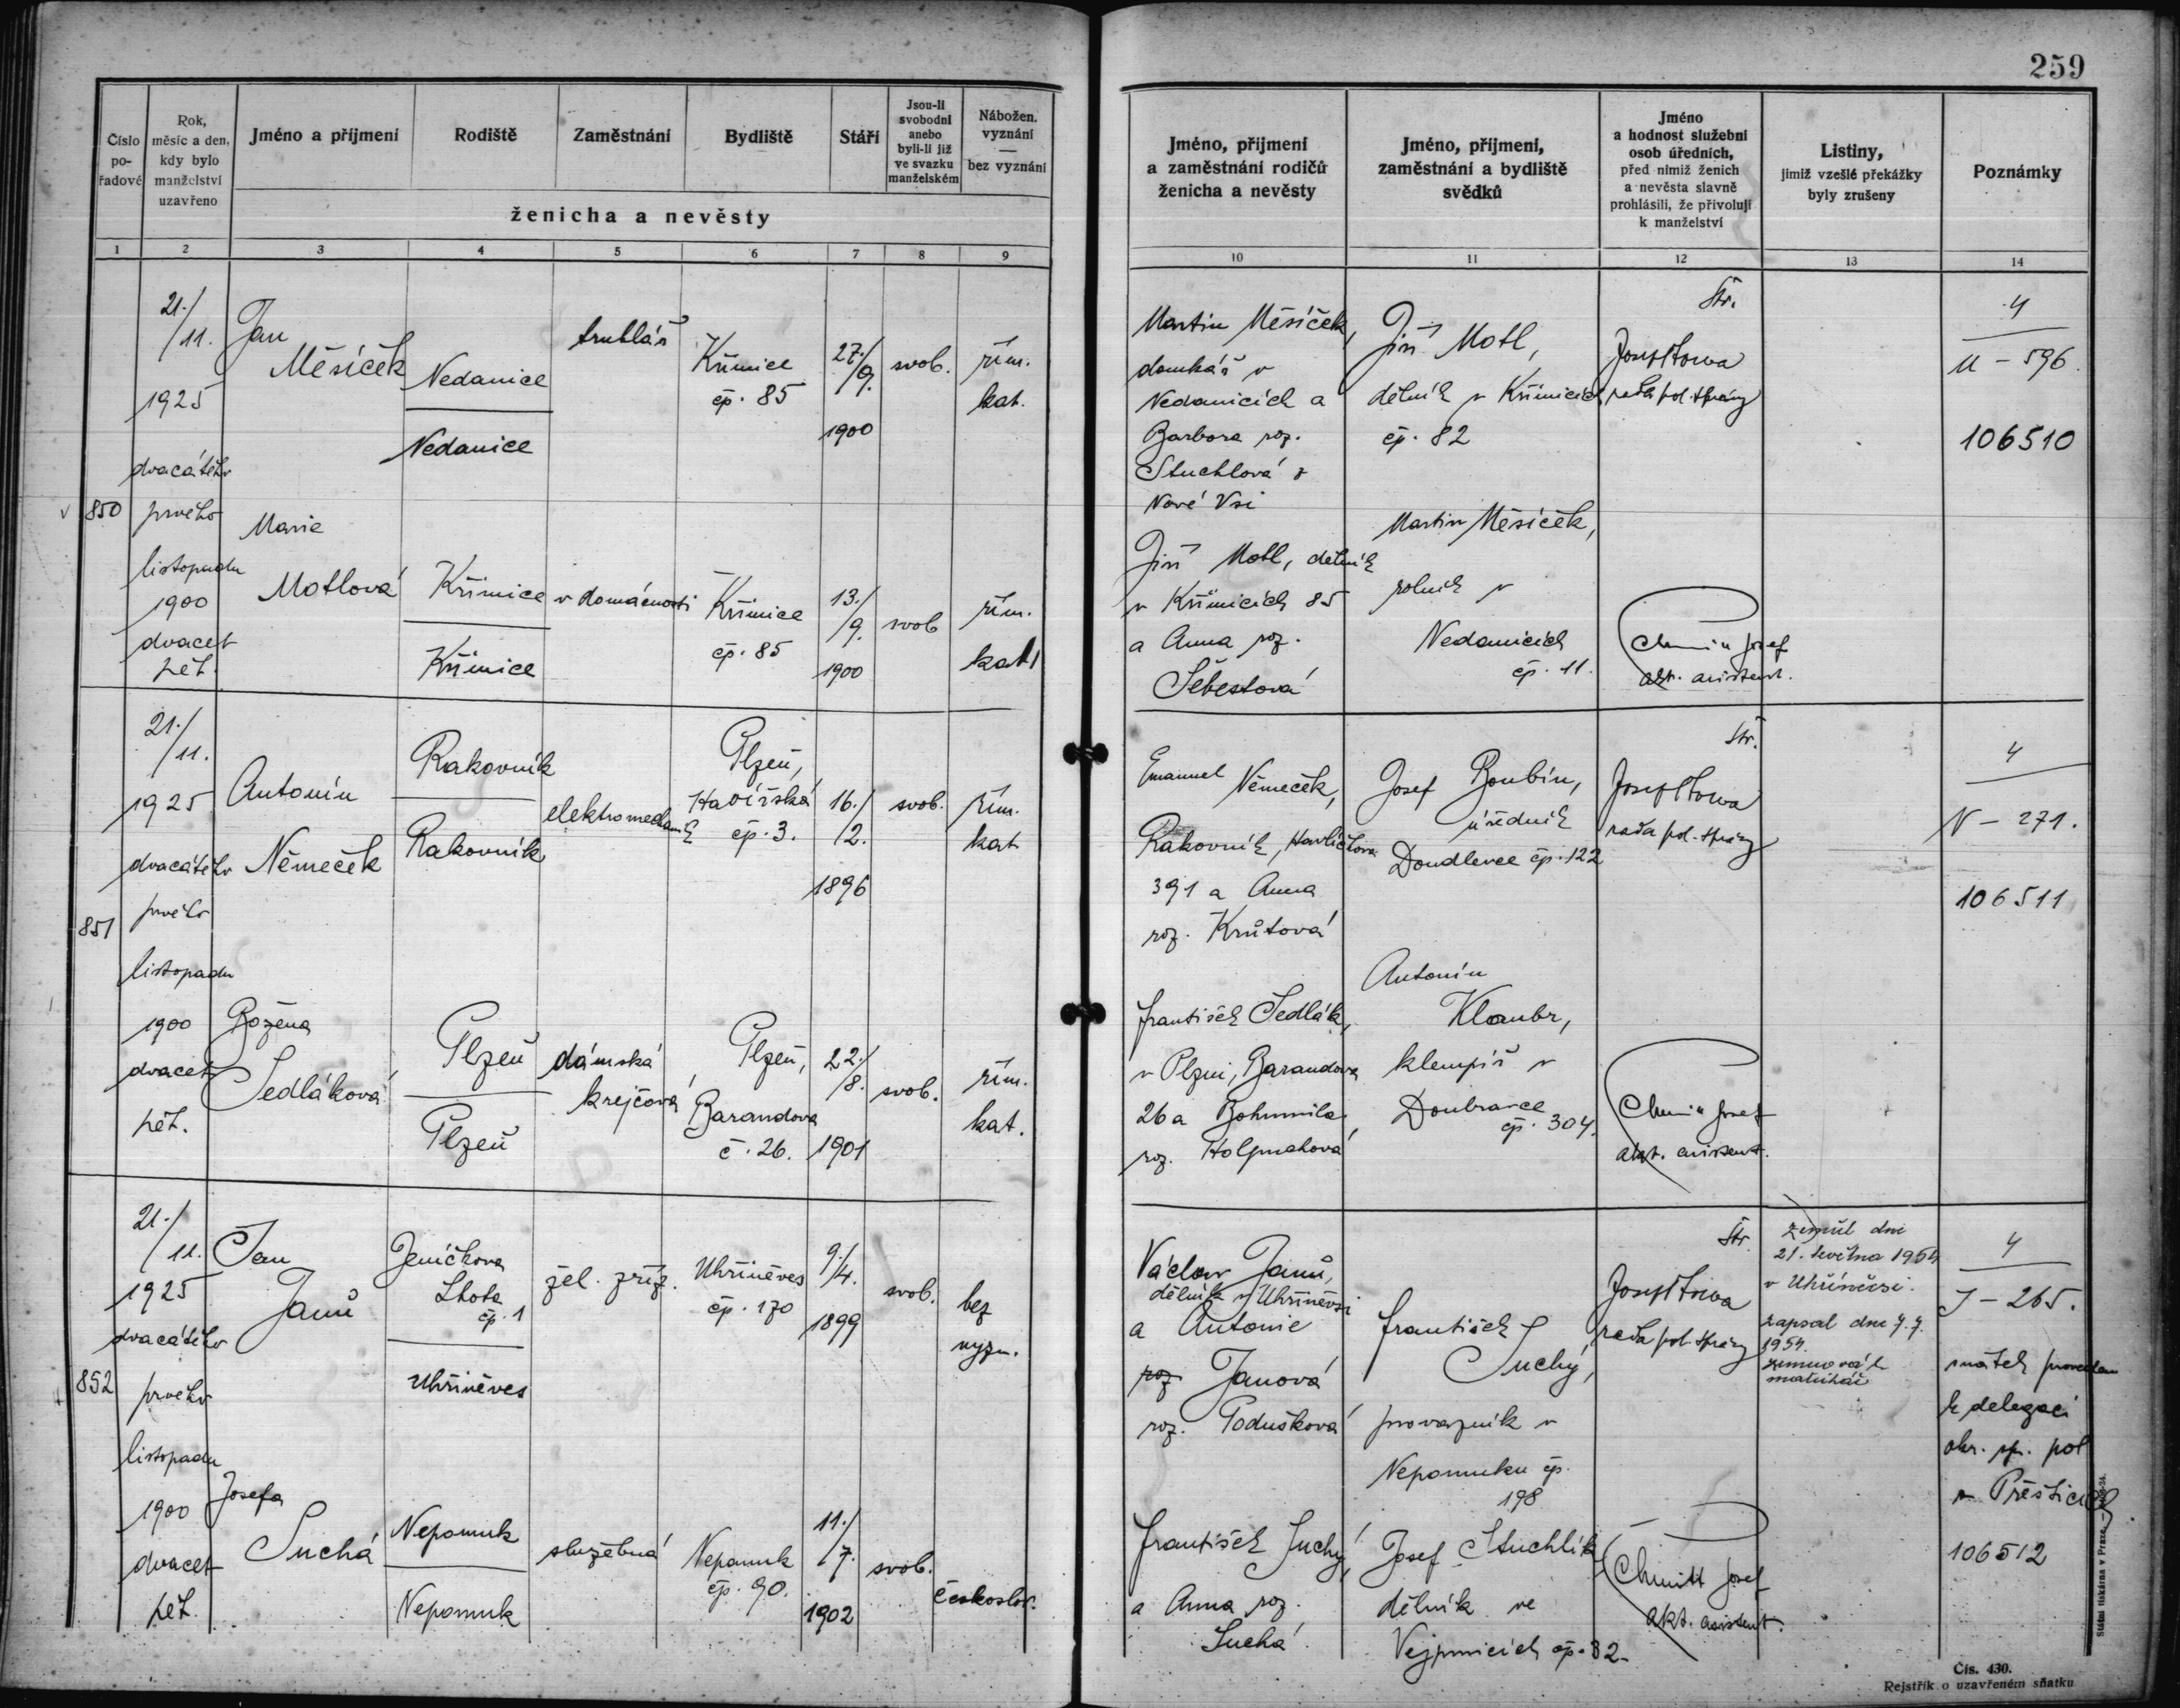 259
Číslo pořadové
Rok, měsíc a den, kdy bylo manželství uzavřeno
Jméno a příjmení
Rodiště
Zaměstnání
Bydliště
Stáří
Jsou-li svobodni anebo byli-li již ve svazku manželském
Nábožen. vyznání — bez vyznání
ženicha a nevěsty
1 2 3 4 5 6 7 8 9
Jméno, příjmení a zaměstnání rodičů ženicha a nevěsty
Jméno, příjmení, zaměstnání a bydliště svědků
Jméno a hodnost služební osob úředních, před nimiž ženich a nevěsta slavně prohlásili, že přivolují k manželství
Listiny, jimiž vzešlé překážky byly zrušeny
Poznámky
10 11 12 13 14
850
21./
/11.
1925
dvacátého
prvého
listopadu
1900
dvacet
pět.
Jan
Měsíček
Nedanice
Nedanice
truhlář
Křimice
čp. 85
27./
/9.
1900
svob.
řím.
kat.
Marie
Motlová
Křimice
Křimice
v domácnosti
Křimice
čp. 85
13./
/9.
1900
svob
řím.
kat.
Martin Měsíček,
domkář v
Nedanicích a
Barbora roz.
Stuchlová z
Nové Vsi
Jiří Motl, dělník
v Křimicích 85
a Anna roz.
Šebestová
Jiří Motl,
dělník v Křimicích
čp. 82
Martin Měsíček,
rolník v
Nedanicích
čp. 11.
Str.
Josef
rada pol. správy
Josef
akt. asistent.
4
M - 596
106510
851
21./
/11.
1925
dvacátého
prvého
listopadu
1900
dvacet
pět.
Antonín
Němeček
Rakovník
Rakovník
elektromechanik
Plzeň,
Havířská
čp. 3.
16./
/2.
1896
svob.
řím.
kat
Božena
Sedláková
Plzeň
Plzeň
dámská
krejčová
Plzeň,
Barandova
č. 26.
22./
/8.
1901
svob.
řím.
kat.
Emanuel Němeček,
Rakovník, Havlíčkova
391 a Anna
roz. Krůtová
František Sedlák,
v Plzni, Barandova
26 a Bohumila
roz.
Josef Boubín,
úředník
Doudlevce čp. 122
Antonín
Klaubr,
klempíř v
Doubravce
čp. 304.
Str.
Josef
rada pol. správy
Josef
akt. asistent.
4
N - 271.
106511
852
21./
/11.
1925
dvacátého
prvého
listopadu
1900
dvacet
pět.
Jan
Janů
Jeníčkova
Lhota
čp. 1
Uhříněves
žel. zříz.
Uhříněves
čp. 170
9./
/4.
1899
svob.
bez
vyzn.
Josefa
Suchá
Nepomuk
Nepomuk
služebná
Nepomuk
čp. 90.
11./
/7.
1902
svob.
českoslov.
Václav Janů,
dělník v Uhříněvsi
a Antonie
roz Janová
roz. Podušková
František Suchý,
a Anna roz.
Suchá
František
Suchý,
provazník v
Nepomuku čp.
198
Josef Stuchlík
dělník ve
Vejprnicích čp. 82.
Str.
Josef
rada pol. správy
Josef
akt. asistent.
zemřel dne
21. května 1954
v Uhříněvsi.
zapsal dne 7.7.
1954.
matrikář
4
J - 265.
sňatek proveden
z delegací
okr. spr. pol
v Přešticích
106512
Státní tiskárna v Praze.
Čís. 430.
Rejstřík o uzavřeném sňatku